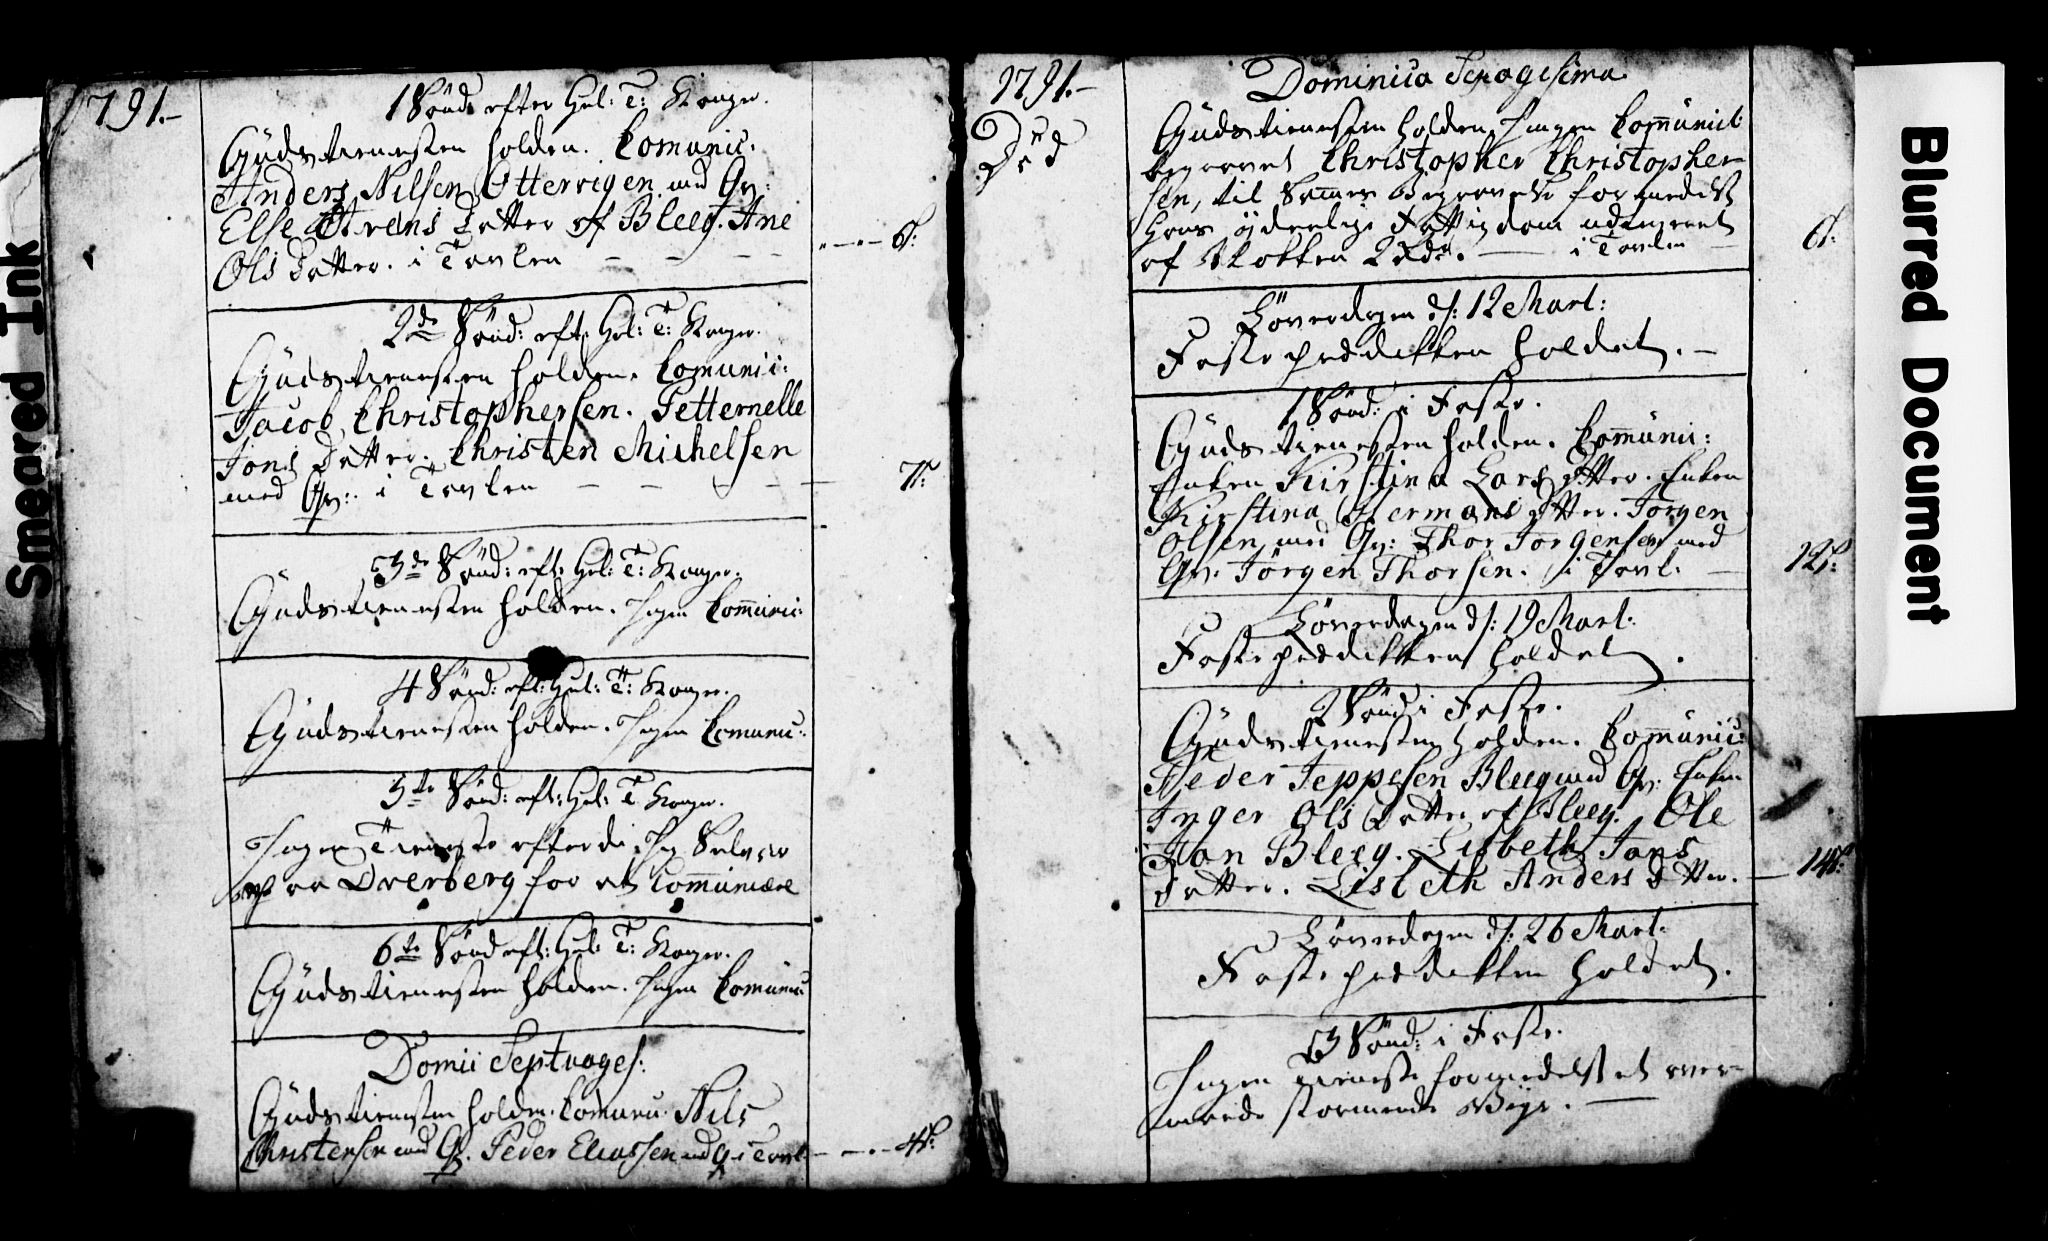 Smeared Ink
1791.-
1 Sönd: efter Hel: T: Konger.
Gudstienesten holden. Comunic:
Anders Nilsen Otterrigen med Qv:
Else Arens Datter af Bleeg. Ane
Ols Datter. i Tavlen - - - - 6s:
2de Sönd: eft: Hel: T: Konger.
Gudstienesten holden. Comunic:
Jacob Christophersen. Petternelle
Jons Datter. Christen Michelsen
med Qv: i Tavlen - - - - 7s:
3de Sönd: eft: Hel: T: Konger.
Gudstienesten holden. Ingen Communic:
4 Sönd: eft: Hel: T: Konger.
Gudstienesten holden. Ingen Comunic:
5te Sönd: eft: Hel: T Konger.
Ingen Tieneste efterdi Jeg Selv var
paa Overberg for at Communicere
6te Sönd eft: Hel: T: Konger.
Gudstienesten holden. Ingen Comunic:
Domii Septuages:
Gudstienesten holden. Comunic. Nils
Christensen med Qv. Peder Eliassen med Qv i Tavl - - 4s:
1791.-
Död
Dominica Sexagesima
Gudstienesten holden, Ingen Communict:
begravet Christopher Christopher-
sen, til Sammes Begravelse formedelst
Hans ijderlige Fattigdom udtaget
af Blokken 2rdr. — i Tavlen - 6s:
Löverdagen d: 12 Mart:
Fasteprædikken holdet. -
1 Sönd: i Faste.
Gudstienesten holden. Communic:
Enken Kirstina Lars Dtter. Enken
Kirstina Hermans Dtter. Jörgen
Olsen med Qv: Thor Jörgensen med
Qv: Jörgen Thorsen. i Tavl. - 12s:
Löverdagen d: 19 Mart:
Fasteprædikken holdet.
2 Sönd: i Faste.
Gudstienesten holden. Communic:
Peder Jeppesen Bleeg med Qv: Enken
Inger Ols Datter af Bleeg. Ole
Jan Bleeg. Lisbeth Jans
Datter. Lisbeth Anders Dtter. - 14s:
Löverdagen d: 26 Mart:
Fasteprædikken holdet.
3 Sönd: i Faste.
Ingen tieneste formedelst et over-
maade stormende Veijr. —
Blurred Document